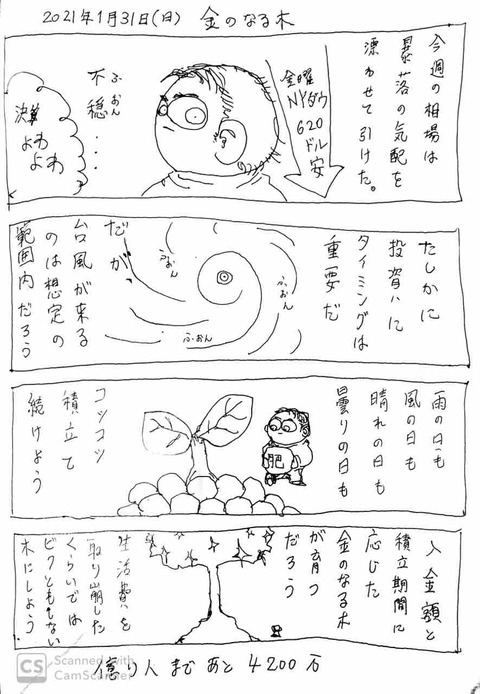 2021年1月31日(日) 金のなる木
今週の相場は
暴落の気配を
漂わせて引けた。
金曜
NYダウ
620
ドル
安
ふおん
不穏・・・
決算
よわ
よわ
たしかに
投資に
タイミングは
重要だ
ふおん
ふおん
ふおん
だが、
台風が来る
のは想定の
範囲内だろう
雨の日も
風の日も
晴れの日も
曇りの日も
肥
コツコツ
積立て
続けよう
入金額と
積立期間に
応じた
金のなる木
が育つ
だろう
生活費を
取り崩した
くらいでは
ビクともしない
木にしよう
億り人まであと4200万
CS Scanned with
CamScanner